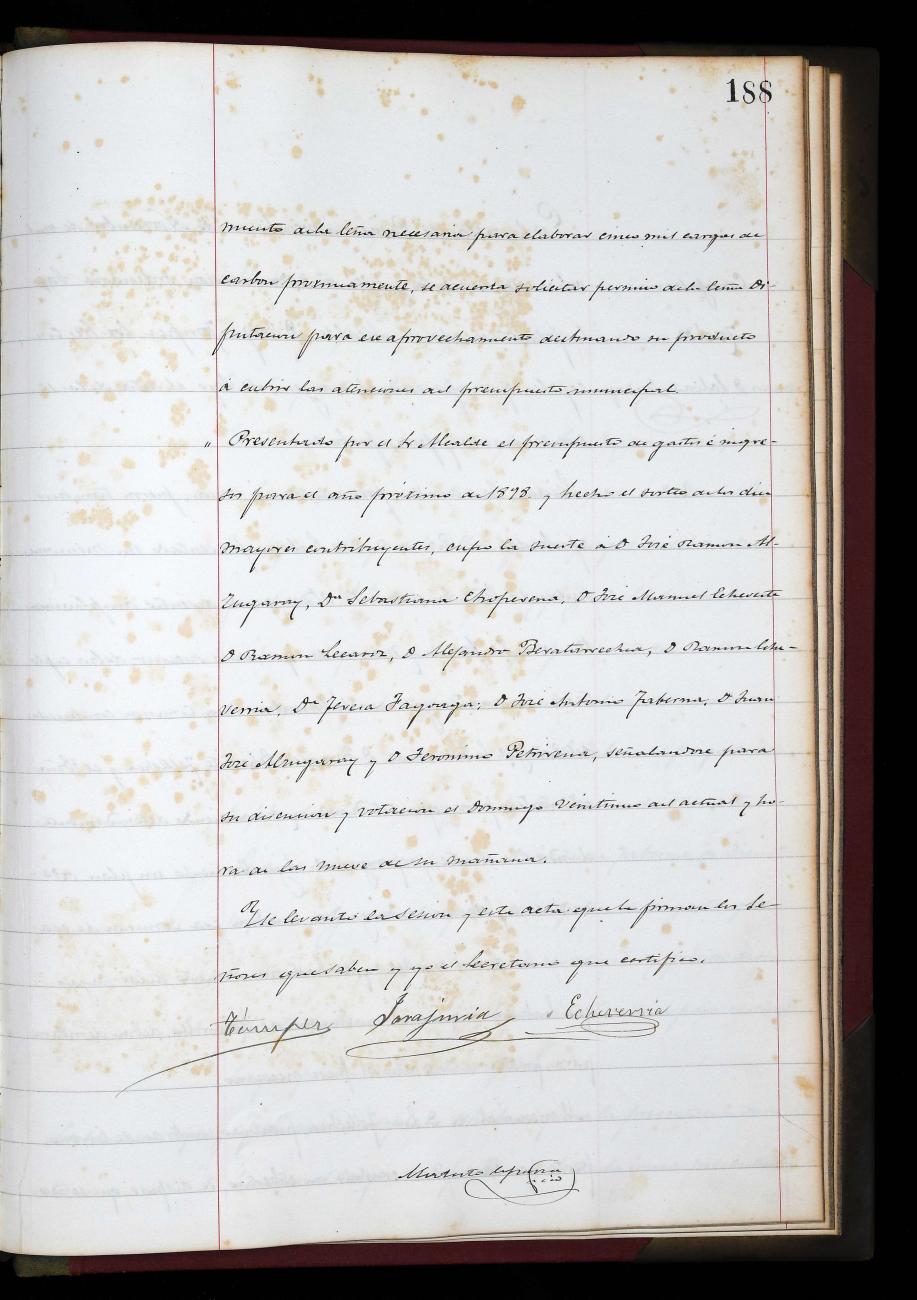 188
miento de la leña necesaria para elaborar cinco mil cargas de
carbon proximamente, se acuerda solicitar permiso de la Excma Di-
putacion para ese aprovechamiento destinando su producto
á cubrir las atenciones del presupuesto municipal.
" Presentado por el Sr Alcalde el presupuesto de gastos é ingre-
sos para el año próximo de 1898 y hecho el sorteo de los diez
mayores contribuyentes, cupo la suerte á D José Ramon Al-
zugaray, Dª Sebastiana Choperena, D José Manuel Echeveste
D Ramon Lecaroz, D Alejandro Beratarrechea, D Ramon Eche-
verria, Dª Teresa Fagoaga, D José Antonio Taberna, D Juan
José Alzugaray y D Jeronimo Petrirena, señalandose para
su discusion y votacion el Domingo veintiuno del actual y ho-
ra de las nueve de su mañana.
Y se levantó la sesion y esta acta que la firman los Se-
ñores que saben y yo el Secretario que certifico.
Jorajuria Echeverria